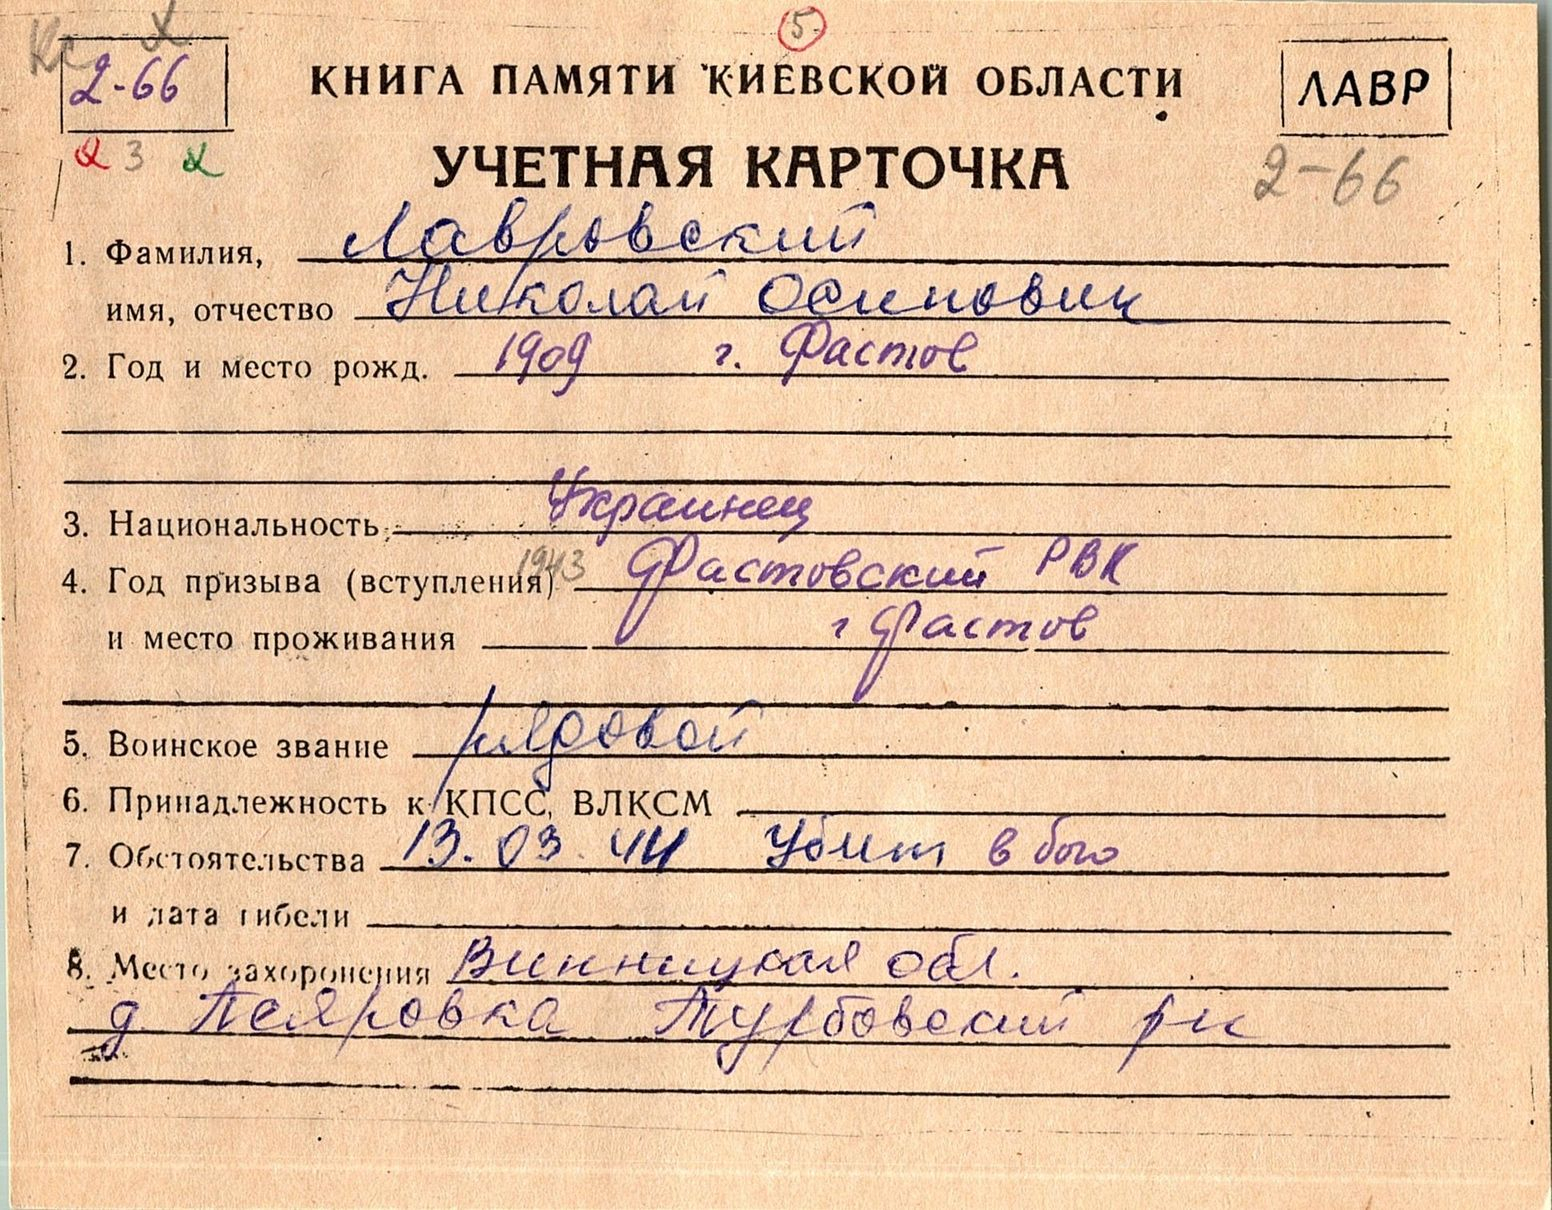 5
Кс
2-66
КНИГА ПАМЯТИ КИЕВСКОЙ ОБЛАСТИ
ЛАВР
3
УЧЕТНАЯ КАРТОЧКА
2-66
1. Фамилия, Лавровский
имя, отчество Николай Осипович
2. Год и место рожд. 1909 г. Фастов
3. Национальность Украинец
4. Год призыва (вступления) 1943 Фастовский РВК
и место проживания г Фастов
5. Воинское звание рядовой
6. Принадлежность к КПСС, ВЛКСМ
7. Обстоятельства 13.03.44 Убит в бою
и дата гибели
8. Место захоронения Винницкая обл.
д. Турбовский р-н